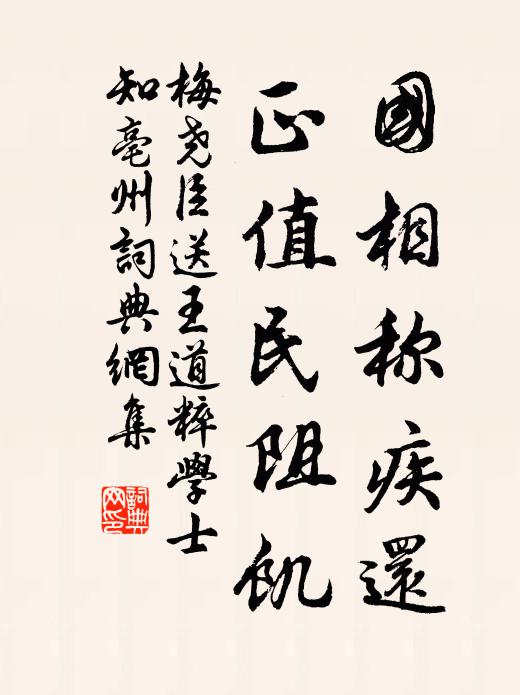 國相称疾還
正值民阻飢
梅尧臣送王道粹學士
知亳州詞典網集
詞典
网印